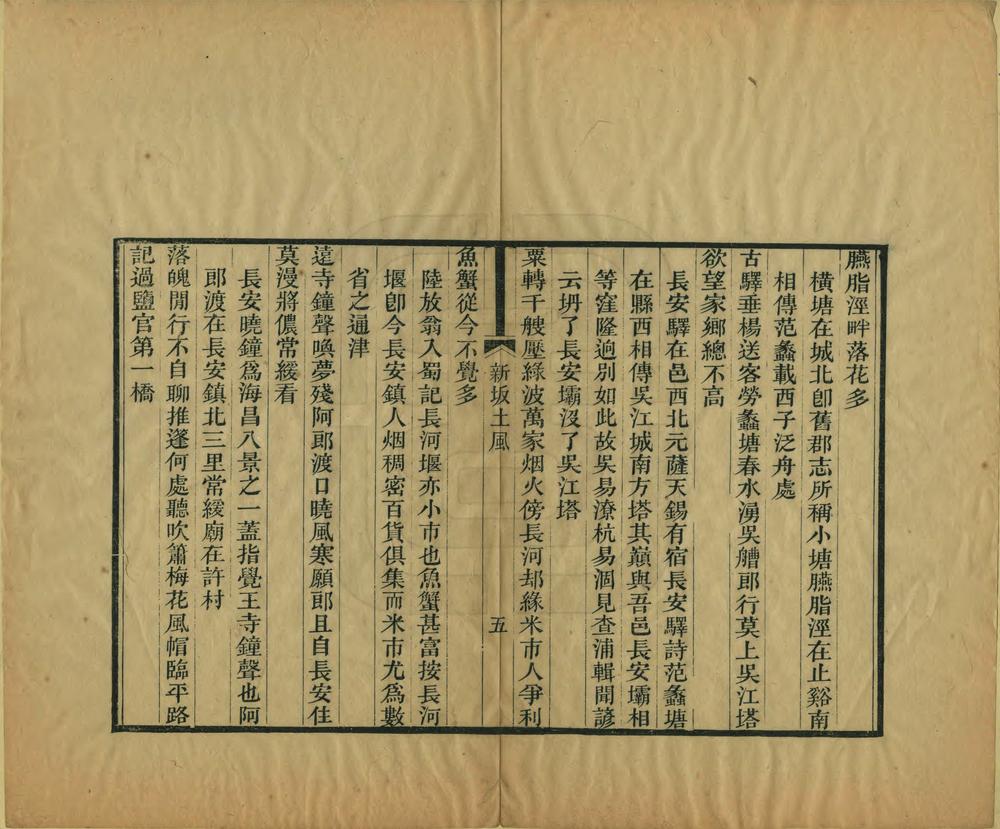 臙脂涇畔落花多
橫塘在城北卽舊郡志所稱小塘臙脂涇在止谿南
相傳范蠡載西子泛舟處
古驛垂楊送客勞蠡塘春水湧吳艚郎行莫上吳江塔
欲望家鄉總不高
長安驛在邑西北元薩天錫有宿長安驛詩范蠡塘
在縣西相傳吳江城南方塔其巔與吾邑長安壩相
等窪隆逈別如此故吳易潦杭易涸見查浦輯聞諺
云坍了長安壩沒了吳江塔
粟轉千艘壓綠波萬家烟火傍長河却緣米市人爭利
新坂土風
五
魚蟹從今不覺多
陸放翁入蜀記長河堰亦小市也魚蟹甚富按長河
堰卽今長安鎮人烟稠密百貨俱集而米市尤爲數
省之通津
遠寺鐘聲喚夢殘阿郎渡口曉風寒願郎且自長安住
莫漫將儂常緩看
長安曉鐘爲海昌八景之一蓋指覺王寺鐘聲也阿
郎渡在長安鎮北三里常緩廟在許村
落魄閒行不自聊推蓬何處聽吹簫梅花風帽臨平路
記過鹽官第一橋